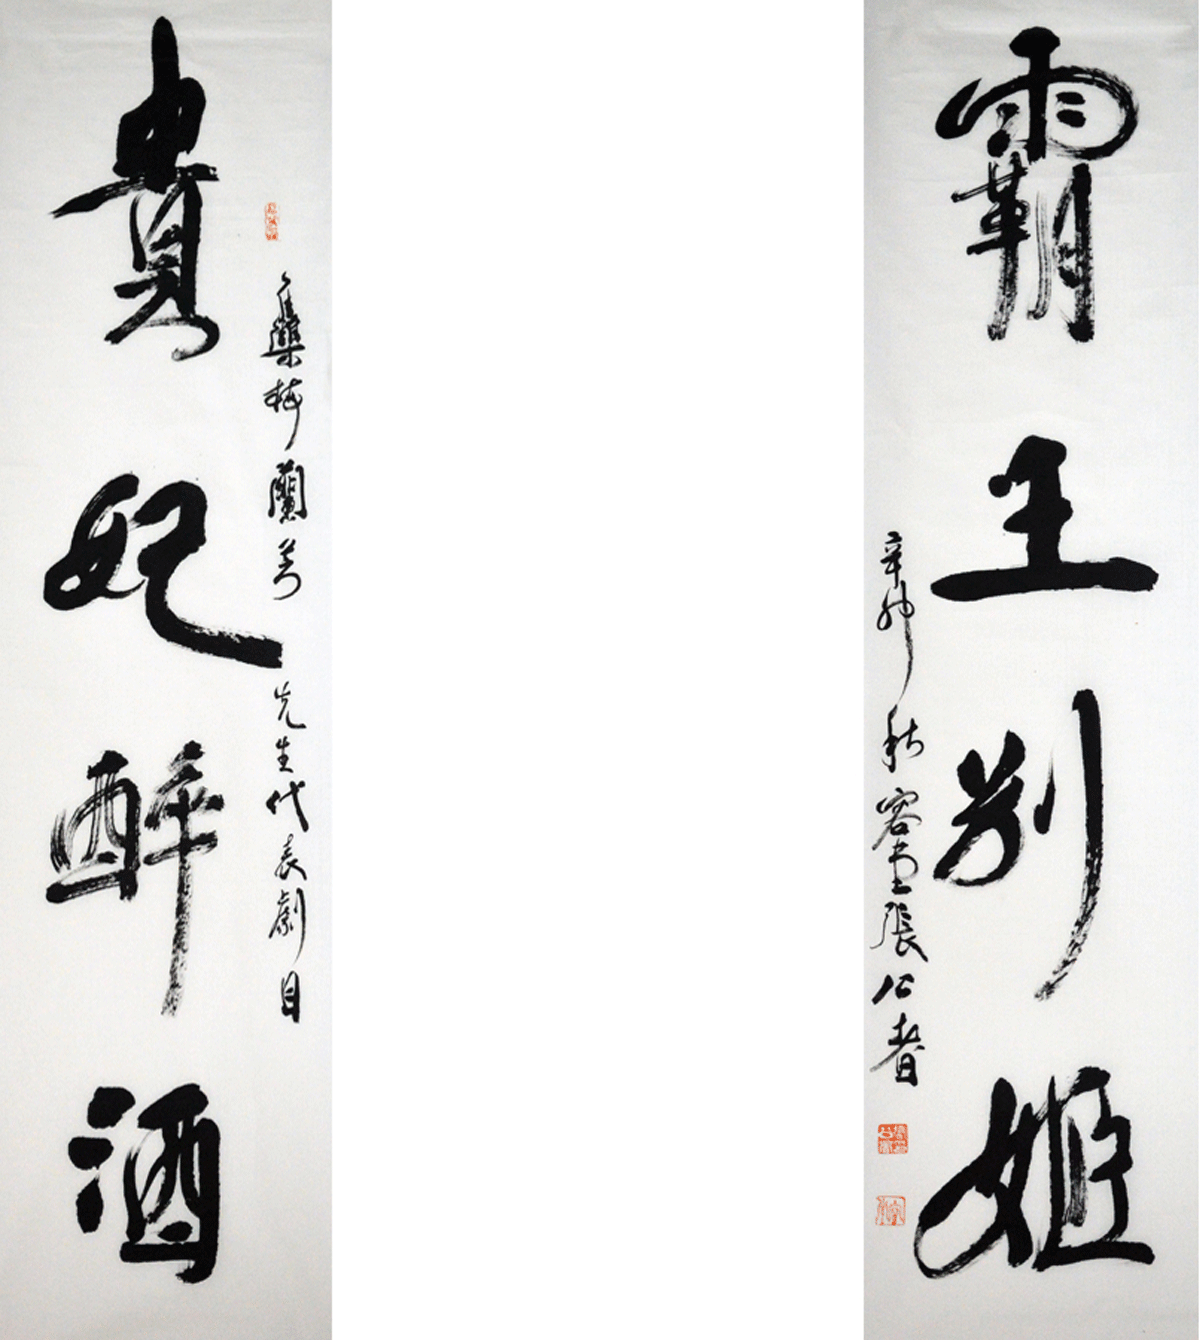 霸王别姬
辛卯秋容堂張公者
集梅蘭芳先生代表劇目
貴妃醉酒